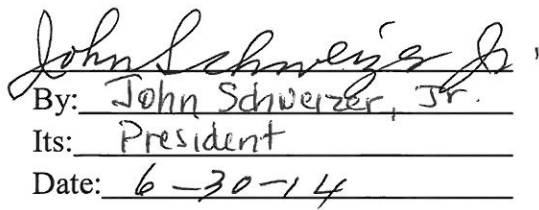 John Schweizer Jr.
By: John Schweizer, Jr.
Its: President
Date: 6-30-14